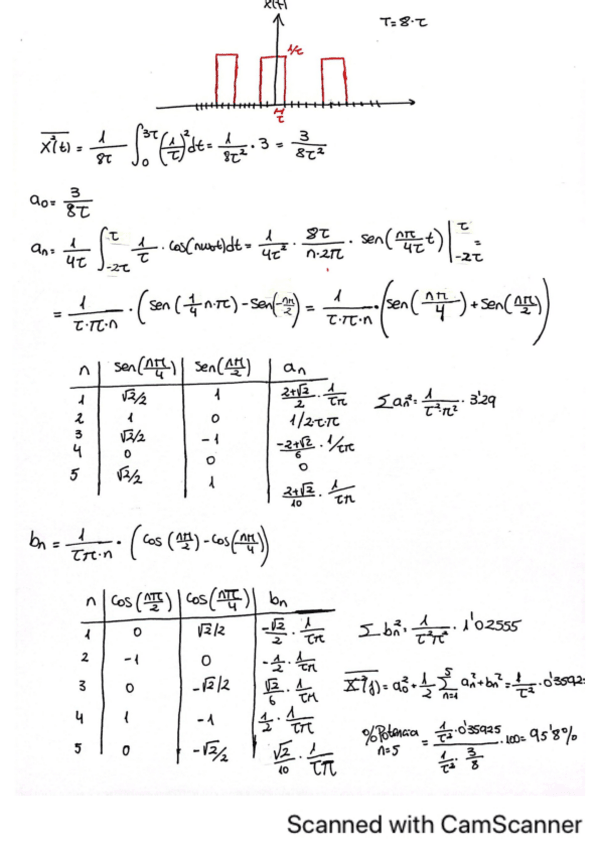 x(t)
T=8·τ
1/τ
x²(t) = 1/8τ ∫₀^3τ (1/τ)² dt = 1/8τ² · 3 = 3/8τ²
a₀ = 3/8τ
aₙ = 1/4τ ∫₋₂τ^τ 1/τ · cos(nω₀t)dt = 1/4τ² · 8τ/n·2π · sen(nπ/4τ t)|₋₂τ^τ =
= 1/τ·π·n · (sen(1/4 n·π) - sen(-nπ/2) = 1/τ·π·n · (sen(nπ/4) + sen(nπ/2))
n | sen(nπ/4) | sen(nπ/2) | aₙ
1 | √2/2 | 1 | 2+√2/2 · 1/τπ
2 | 1 | 0 | 1/2·τ·π
3 | √2/2 | -1 | -2+√2/6 · 1/τπ
4 | 0 | 0 | 0
5 | √2/2 | 1 | 2+√2/10 · 1/τπ
Σaₙ² = 1/τ²·π² · 3'29
bₙ = 1/τπ·n · (cos(nπ/2) - cos(nπ/4))
n | cos(nπ/2) | cos(nπ/4) | bₙ
1 | 0 | √2/2 | -√2/2 · 1/τπ
2 | -1 | 0 | -1/2 · 1/τπ
3 | 0 | -√2/2 | √2/6 · 1/τπ
4 | 1 | -1 | 1/2 · 1/τπ
5 | 0 | -√2/2 | √2/10 · 1/τπ
Σbₙ² = 1/τ²π² · 1'02555
x²(t) = a₀² + 1/2 Σₙ₌₁⁵ aₙ² + bₙ² = 1/τ² · 0'3592
%Potencia n=5 = 1/τ² · 0'35925 / 1/τ² · 3/8 · 100 = 95'8%
Scanned with CamScanner